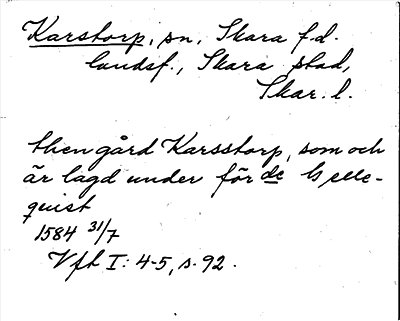 Karstorp, sn, Skara f.d.
landsf., Skara stad,
Skar. l.
then gård Karsstorp, som och
är lagd under förde Gelle-
quist
1584 31/7
Vft I: 4-5, s. 92.